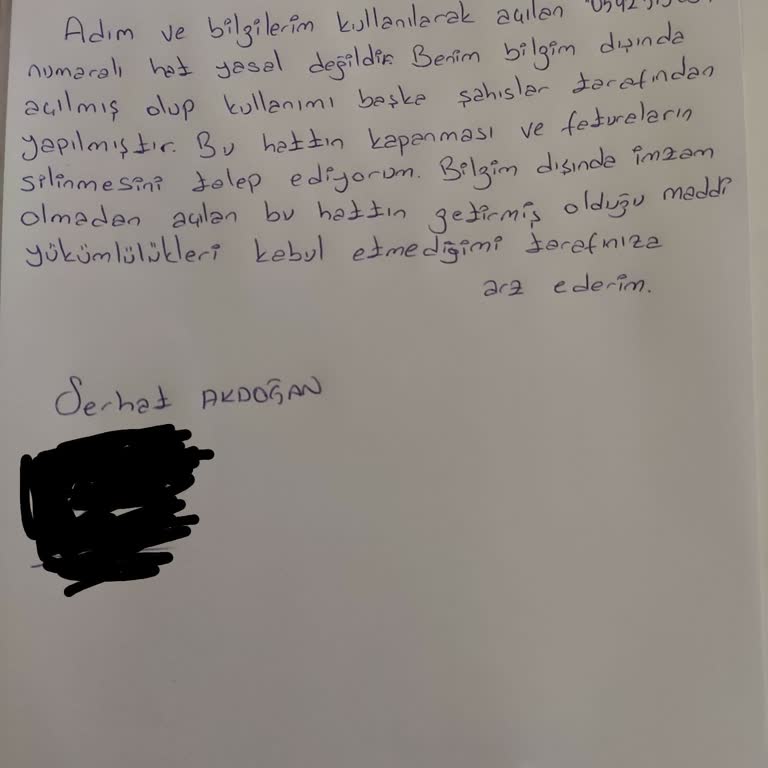 Adım ve bilgilerim kullanılarak açılan
numaralı hat yasal değildir. Benim bilgim dışında
açılmış olup kullanımı başka şahıslar tarafından
yapılmıştır. Bu hattın kapanması ve fatureların
silinmesini talep ediyorum. Bilgim dışında imzam
olmadan açılan bu hattın getirmiş olduğu maddi
yükümlülükleri kabul etmediğimi tarafınıza
arz ederim.
Serhat AKDOĞAN